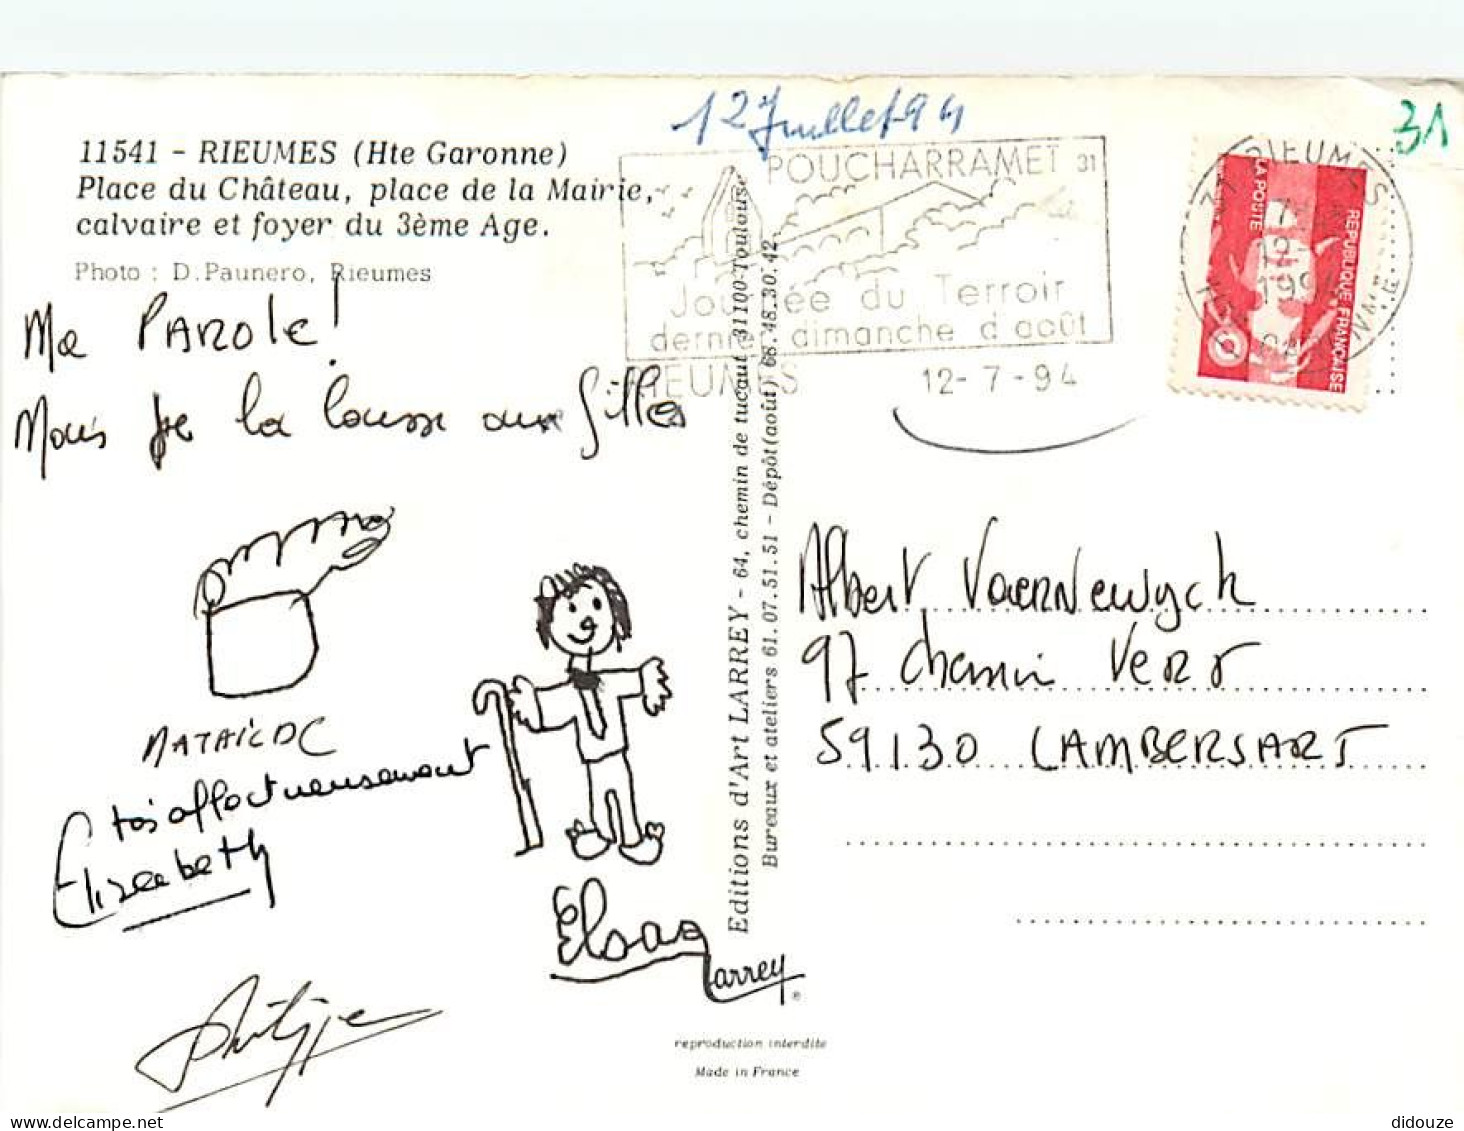 12 Juillet 94
31
11541 - RIEUMES (Hte Garonne)
Place du Château, place de la Mairie,
calvaire et foyer du 3ème Age.
Photo : D. Paunero, Rieumes
POUCHARRAMET 31
Journée du Terroir
dernier dimanche d'août
RIEUMES 12-7-94
31 RIEUMES
HTE GARONNE
LA POSTE
REPUBLIQUE FRANCAISE
Ma PAROLE!
Mais je la laisse aux filles
MATHILDE
très affectueusement
Elisabeth
Elsa
Philippe
Editions d'Art LARREY - 64, chemin de tucaut 31100 Toulouse
Bureaux et ateliers 61.07.51.51 - Dépôt (août) 68.48.30.42
Larrey
reproduction interdite
Made in France
Albert Vaernewyck
97 chemin Vert
59130 LAMBERSART
didouze